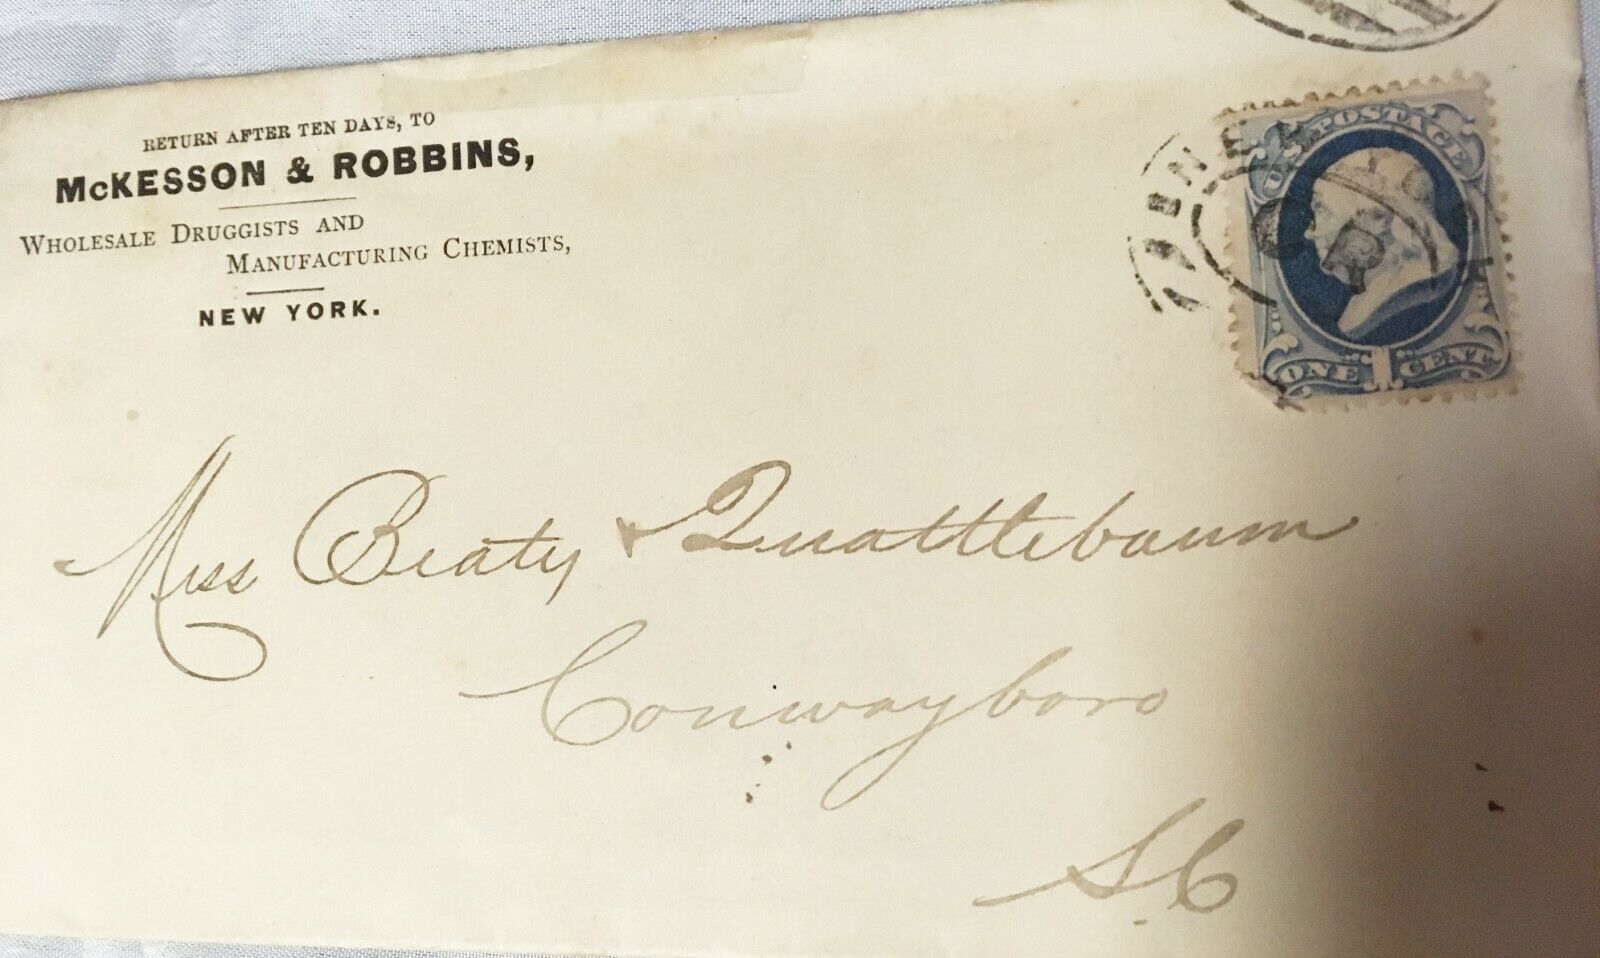 RETURN AFTER TEN DAYS, TO
McKESSON & ROBBINS,
WHOLESALE DRUGGISTS AND
MANUFACTURING CHEMISTS,
NEW YORK.
U.S. POSTAGE
ONE 1 CENT
Mess Beaty & Quattlebaum
Conwayboro
S.C